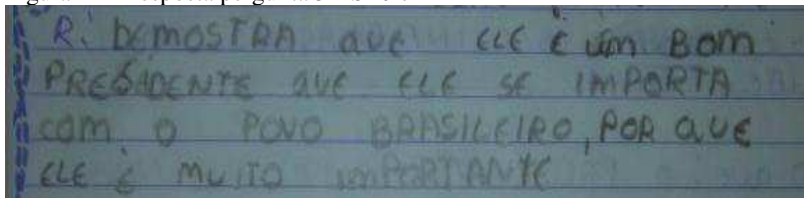 R: DEMOSTRA QUE ELE É UM BOM
PRESIDENTE QUE ELE SE IMPORTA
COM O POVO BRASILEIRO, POR QUE
ELE É MUITO IMPORTANTE